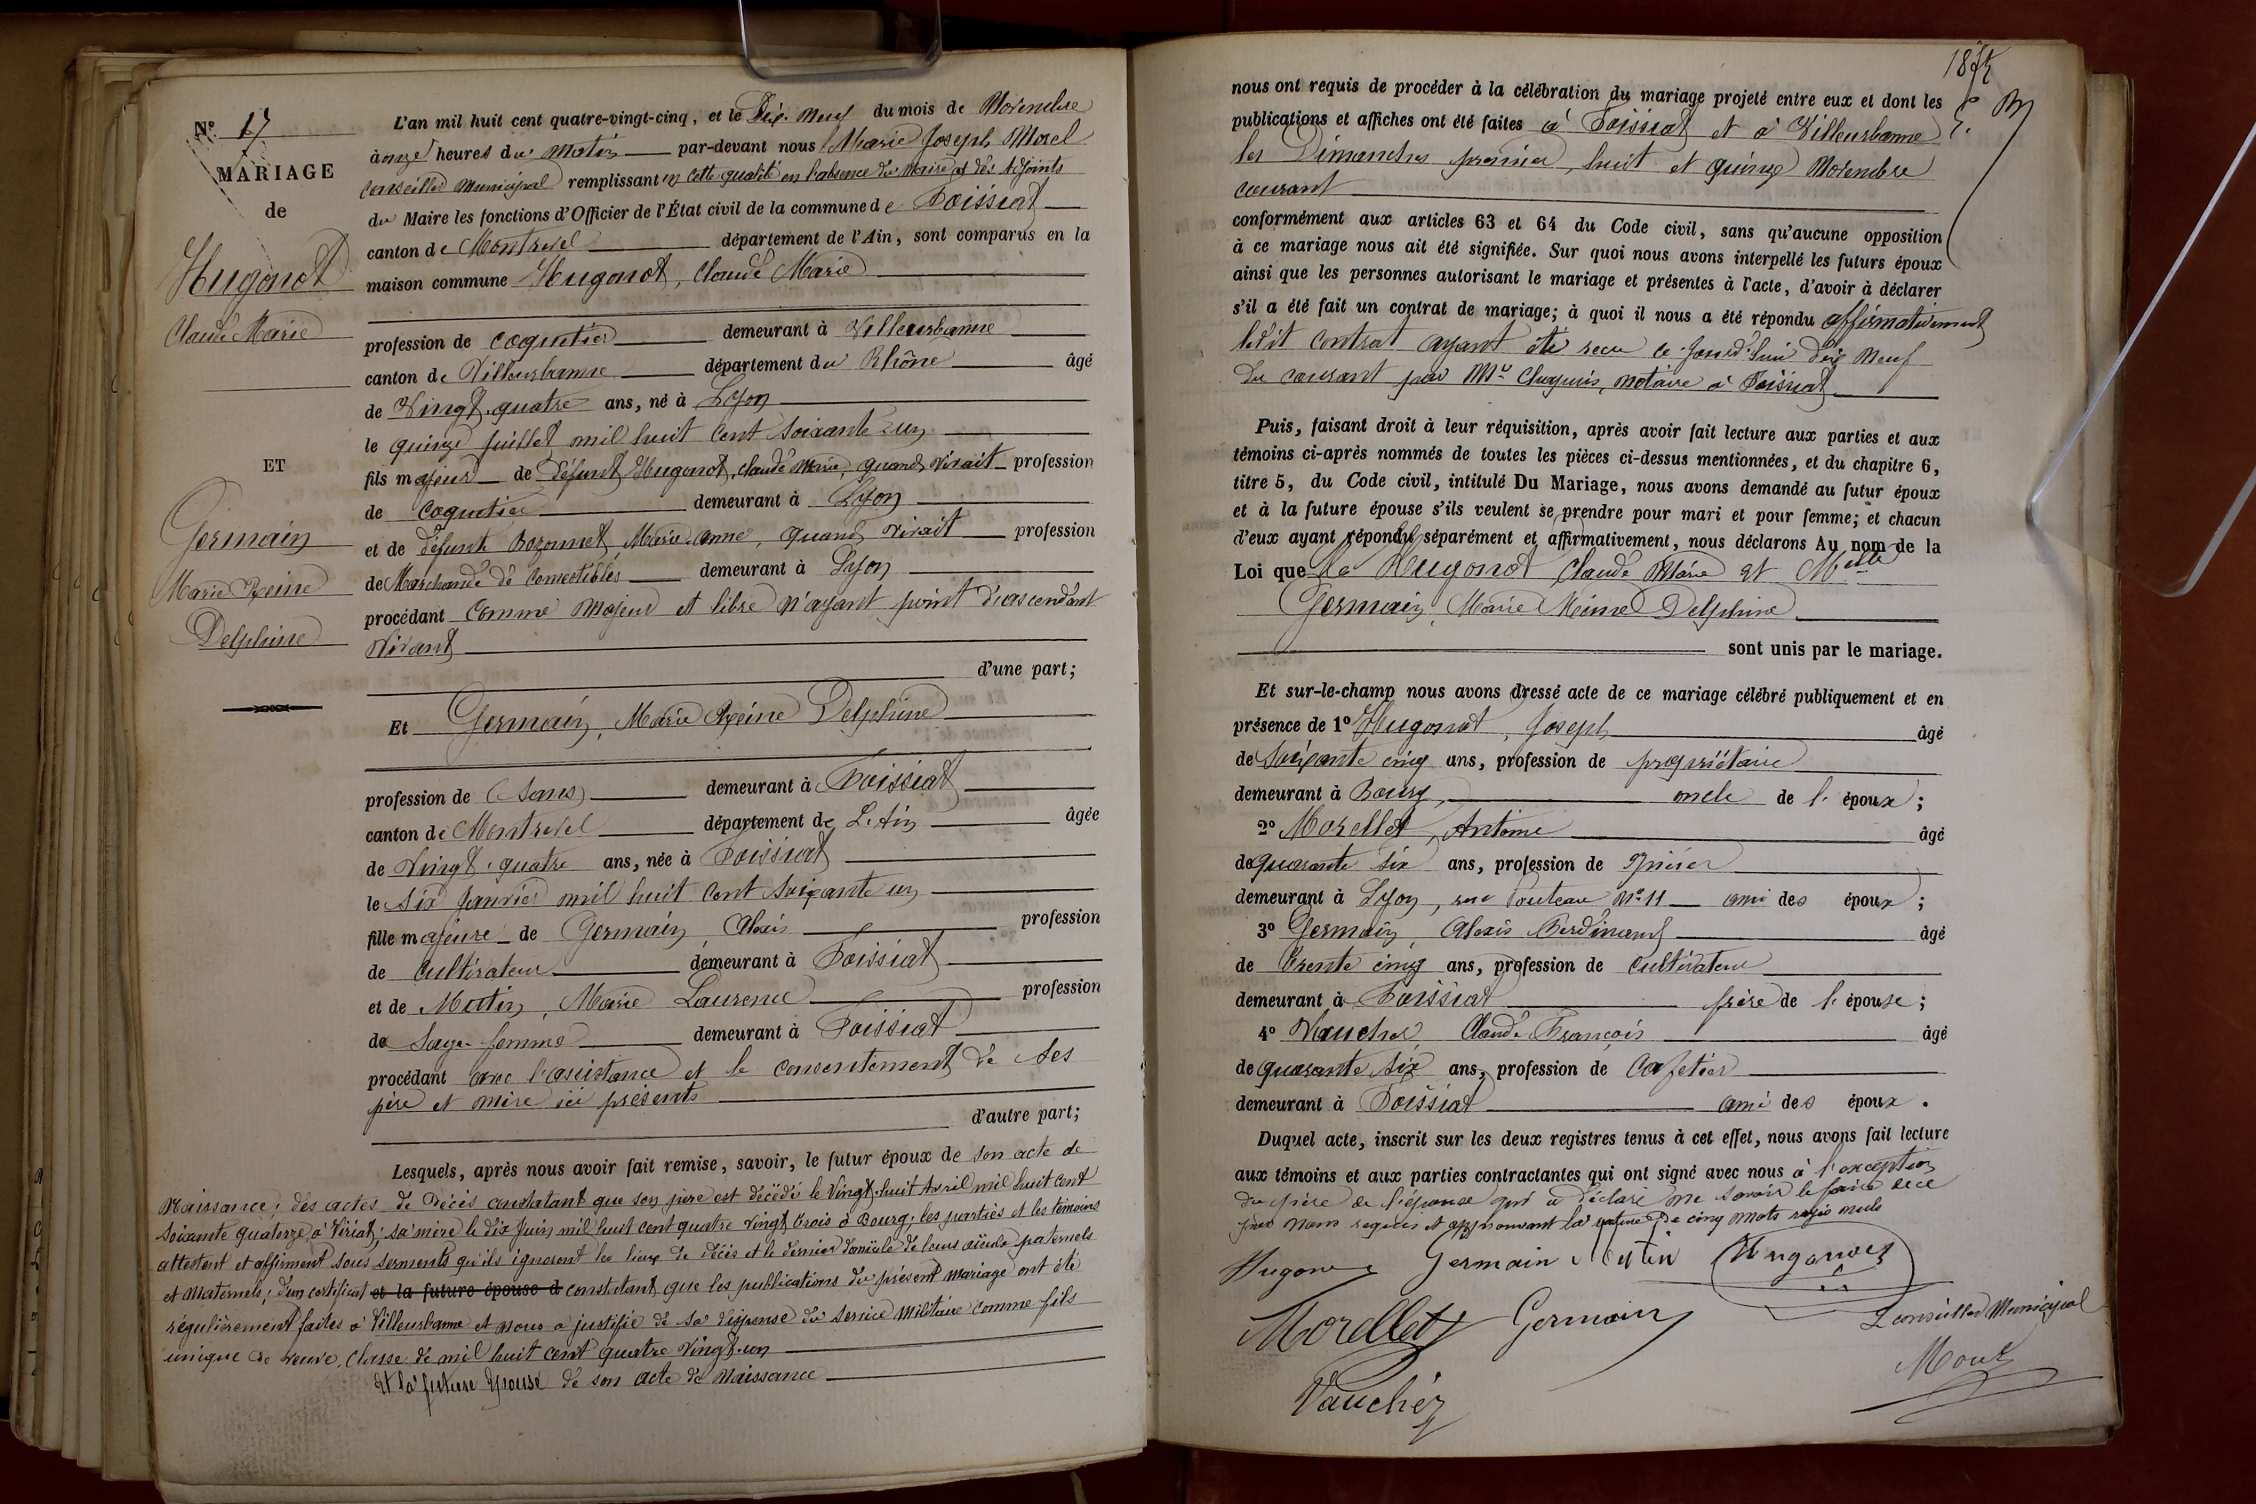 N.º 17
MARIAGE
de
Hugonot
Claude Marie
ET
Germain
Marie Reine
Delphine
L'an mil huit cent quatre-vingt-cinq, et le Dix-Neuf du mois de Novembre
à onze heures du matin par-devant nous Marie Joseph Morel
conseiller municipal remplissant en cette qualité en l'absence du Maire et des Adjoints
du Maire les fonctions d'Officier de l'État civil de la commune de Foissiat
canton de Montrevel département de l'Ain, sont comparus en la
maison commune Hugonot, Claude Marie
profession de coquetier demeurant à Villeurbanne
canton de Villeurbanne département du Rhône âgé
de Vingt-quatre ans, né à Lyon
le quinze Juillet mil huit cent soixante un
fils majeur de défunt Hugonot, Claude Marie, quand vivait profession
de coquetier demeurant à Lyon
et de défunte Bozonnet, Marie-Anne, quand vivait profession
de Marchande de comestibles demeurant à Lyon
procédant comme Majeur et libre n'ayant point d'ascendant
vivant
d'une part;
Et Germain, Marie Reine Delphine
profession de Sans demeurant à Foissiat
canton de Montrevel département de L'Ain âgée
de Vingt-quatre ans, née à Foissiat
le Six Janvier mil huit cent soixante un
fille majeure de Germain Alexis profession
de cultivateur demeurant à Foissiat
et de Mutin, Marie Laurence profession
de Sage-femme demeurant à Foissiat
procédant avec l'assistance et le consentement de ses
père et mère ici présents
d'autre part;
Lesquels, après nous avoir fait remise, savoir, le futur époux de son acte de
Naissance; des actes de Décès constatant que son père est décédé le Vingt-huit Avril mil huit cent
soixante quatorze à Viriat; sa mère le dix Juin mil huit cent quatre vingt trois à Bourg; les parties et les témoins
attestent et affirment sous serments qu'ils ignorent les lieux de décès et le dernier domicile de leurs aïeuls paternels
et maternels; d'un certificat et la future épouse d constatant que les publications du présent mariage ont été
régulièrement faites à Villeurbanne et nous a justifié de sa dispense du service militaire comme fils
unique de veuve, Classe de mil huit cent quatre vingt-un
et la future Epouse de son acte de Naissance
nous ont requis de procéder à la célébration du mariage projeté entre eux et dont les
publications et affiches ont été faites à Foissiat et à Villeurbanne
les Dimanches premier, huit et quinze Novembre
courant
conformément aux articles 63 et 64 du Code civil, sans qu'aucune opposition
à ce mariage nous ait été signifiée. Sur quoi nous avons interpellé les futurs époux
ainsi que les personnes autorisant le mariage et présentes à l'acte, d'avoir à déclarer
s'il a été fait un contrat de mariage; à quoi il nous a été répondu affirmativement
ledit contrat ayant été reçu ce jourd'hui dix Neuf
du courant par notaire à Foissiat
Puis, faisant droit à leur réquisition, après avoir fait lecture aux parties et aux
témoins ci-après nommés de toutes les pièces ci-dessus mentionnées, et du chapitre 6,
titre 5, du Code civil, intitulé Du Mariage, nous avons demandé au futur époux
et à la future épouse s'ils veulent se prendre pour mari et pour femme; et chacun
d'eux ayant répondu séparément et affirmativement, nous déclarons Au nom de la
Loi que Hugonot Claude Marie et Melle
Germain, Marie Reine Delphine
sont unis par le mariage.
Et sur-le-champ nous avons dressé acte de ce mariage célébré publiquement et en
présence de 1º Hugonot, Joseph âgé
de soixante cinq ans, profession de propriétaire
demeurant à Bourg, oncle de l'époux;
2º Morellet, Antoine âgé
de quarante six ans, profession de Epicier
demeurant à Lyon, rue Pouteau Nº 11 ami des époux;
3º Germain, Alexis Ferdinand âgé
de trente cinq ans, profession de cultivateur
demeurant à Foissiat frère de l'épouse;
4º Vaucher, Claude François âgé
de quarante six ans, profession de Cafetier
demeurant à Foissiat ami des époux.
Duquel acte, inscrit sur les deux registres tenus à cet effet, nous avons fait lecture
aux témoins et aux parties contractantes qui ont signé avec nous à l'exception
du père de l'épouse qui a déclaré ne savoir le faire de ce
par nous requis et approuvant la rature de cinq mots rayés nuls
Germain Mutin
Morellet Germain Le conseiller Municipal
Vaucher